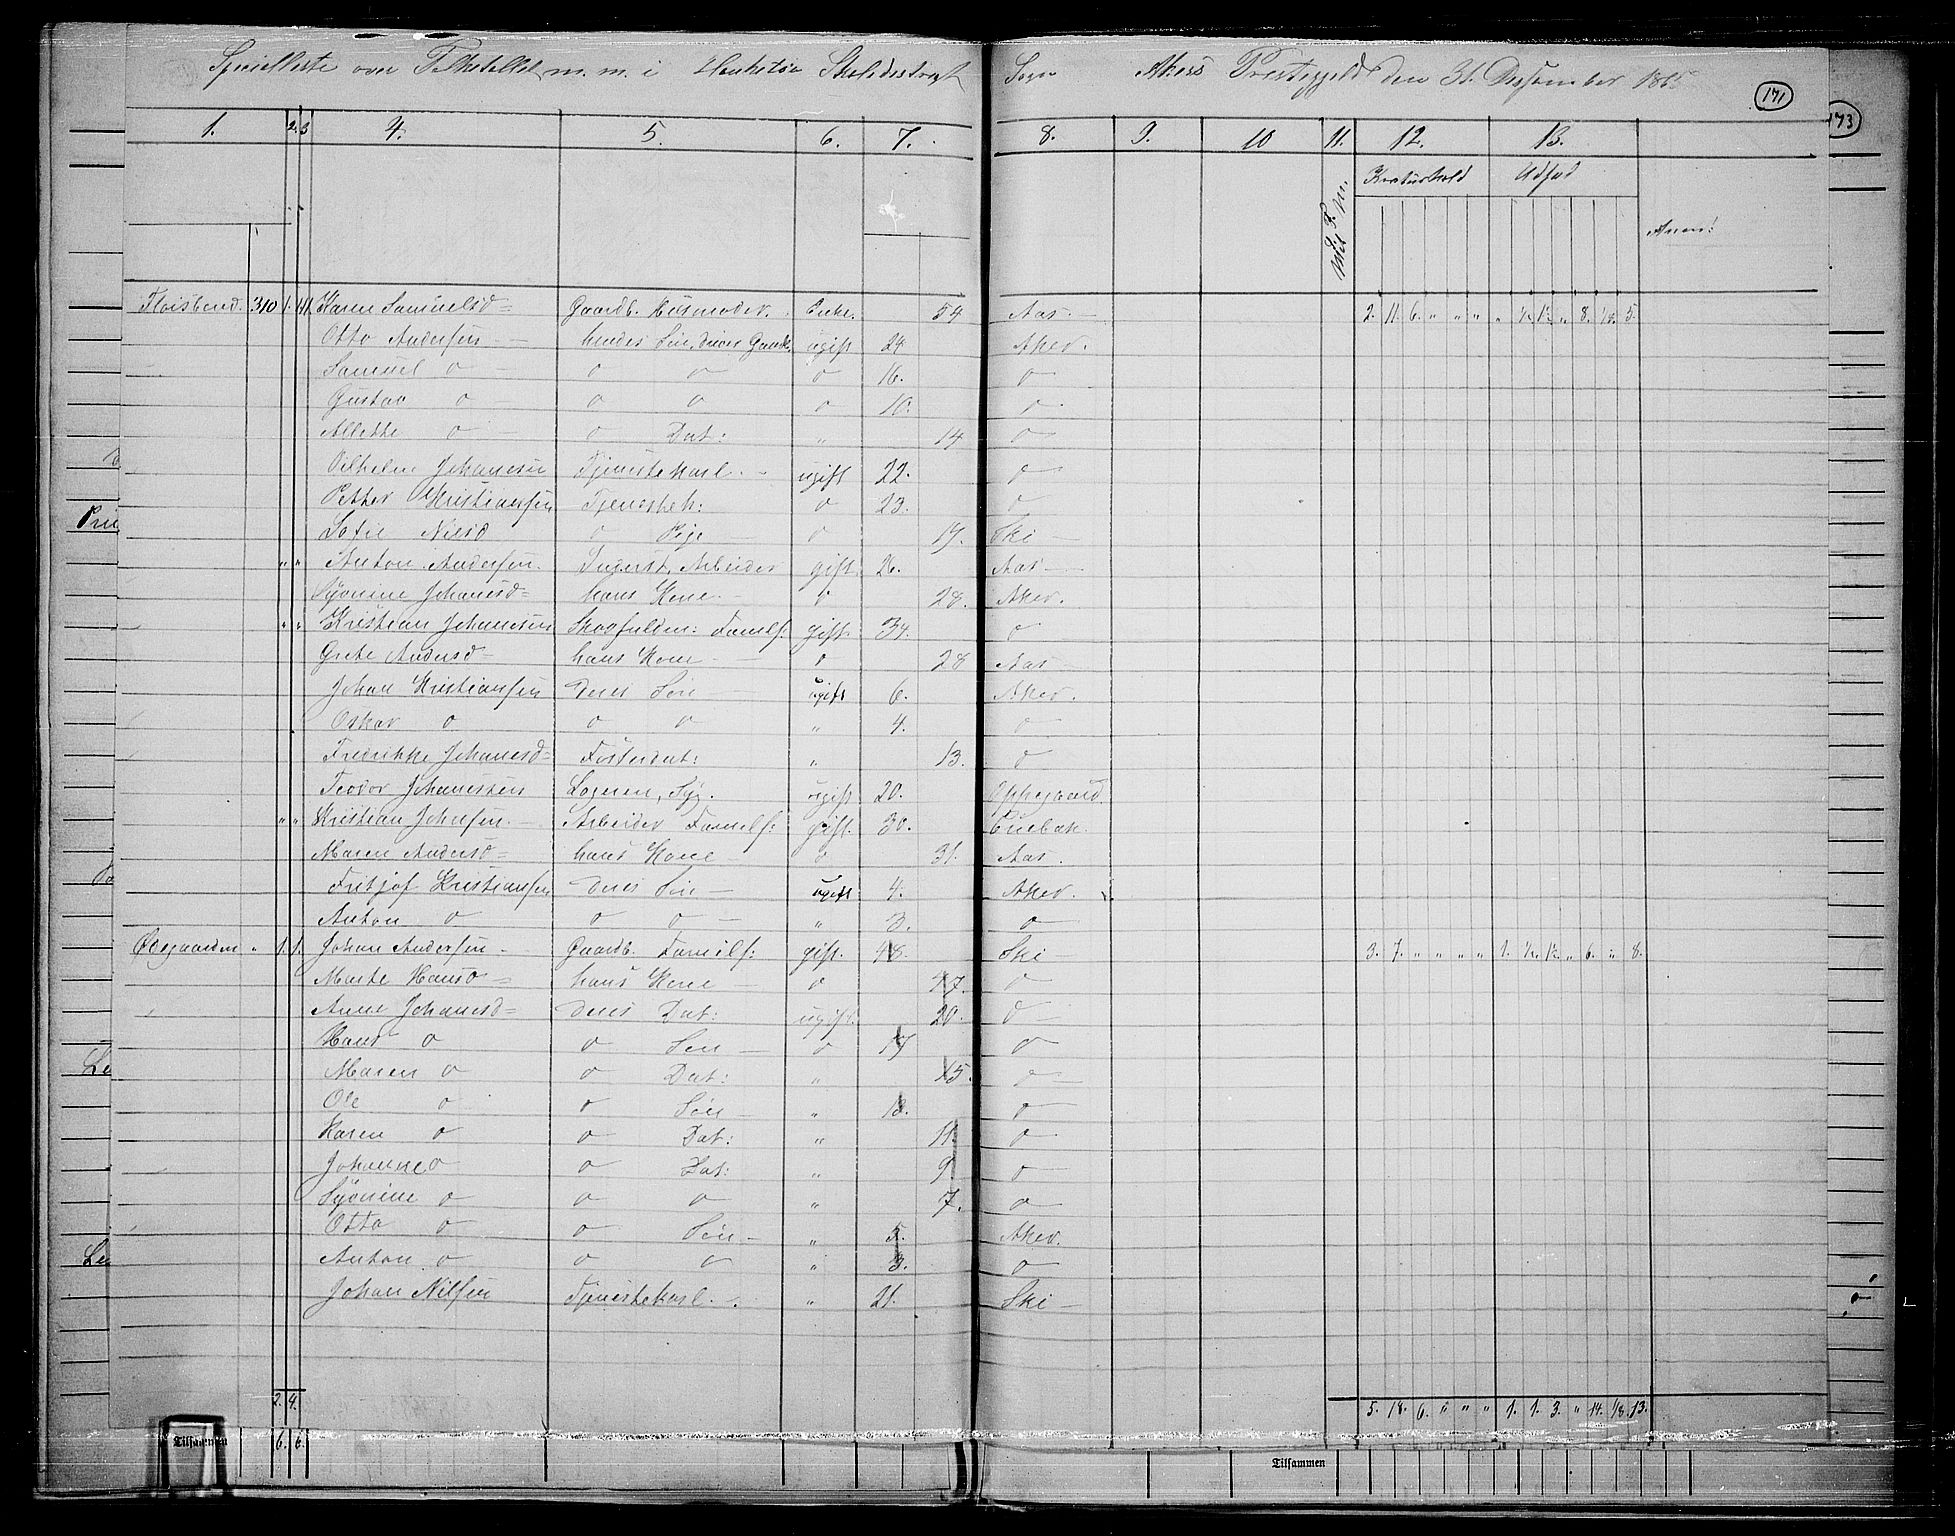 Specialliste over Folketallet m. m. i Skoledistrigt Sogn Akers Præstegjeld den 31. December 1865
171
173
1. 2. 3 4. 5. 6. 7. 8. 9. 10 11. 12. 13.
Kreaturhold Udsæd
Anm:
Floisbond. 310 1. Karen Samuelsd= Gaardb. Husmoder. Enke. 54 Aas. 2. 11. 6. " " " " 8. 5.
Otto Andersen hendes Søn, driver Gaard. ugift 24 Aker.
Samuel o o o o 16. o
Gustav o o o o 10. o
Allette o o Dat: " 14 o
Vilhelm Johansen Tjenestekarl. ugift 22. o
Petter Kristiansen Tjenestek: o 23. o
Sofie Nilsd o Pige o 17. Ski
" " Anton Andersen. Inderst, Arbeider gift 26. Aas
Syverine Johansd= hans Kone o 28. Aker.
" " Kristian Johansen Familf: gift 34. o
Grete Andersd hans Kone o 28 Aas
Johan Kristiansen deres Søn ugift 6. Aker.
Oskar o o o " 4. o
Fredrikke Johansd= Fosterdat: " 13. o
Teodor Johansen Logeren, ugift 20. Oppegaard
" " Kristian Johnsen. Arbeider Familf: gift. 30. Enebak.
Maren Andersd= hans Kone o 31. Aas.
Fritjof Kristiansen deres Søn ugift 4. Aker.
Anton o o o " 3. o
Ødegaarden " 1. 1. Johan Andersen Gaardb. Familf: gift. 48. Ski 3. 7. " " " " 1. " 6. " 8.
Marte Hansd= hans Kone o 47. o
Anne Johansd= deres Dat: ugift. 20. o
Hans o o Søn o 17 o
Maren o o Dat: " 15. o
Ole o o Søn " 13. o
Karen o o Dat: " 11. o
Johanne o o Dat: " 9 o
Syverine o o o " 7. o
Otto o o Søn " 5. Aker.
Anton o o o " 3. o
Johan Nilsen Tjenestekarl. " 21. Ski
2. 4. 5. 18. 6. " " " 1. 1. 3. " 14. 1/8. 13.
Tilsammen 6. 6. Tilsammen